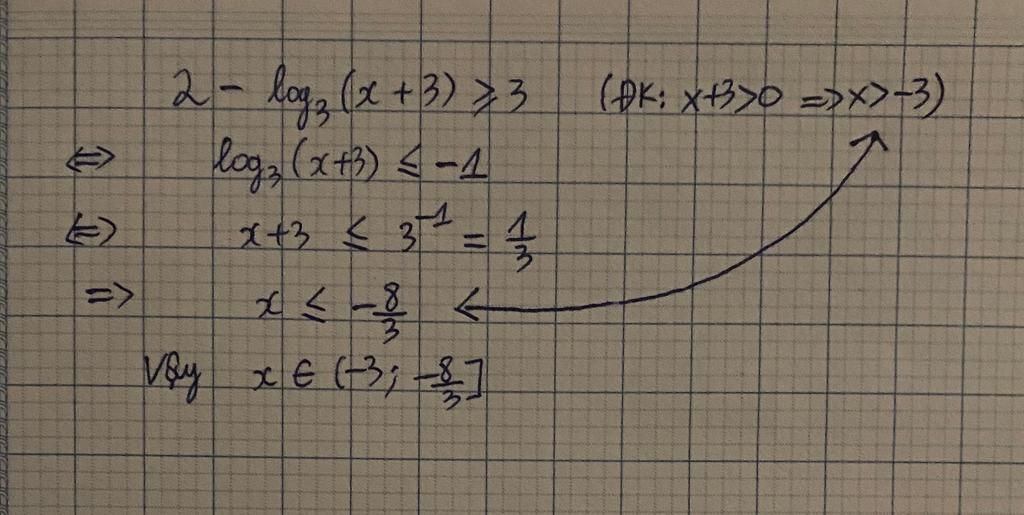 2 - log₃(x+3) ⩾ 3 (ĐK: x+3>0 => x>-3)
<=> log₃(x+3) ≤ -1
<=> x+3 ≤ 3⁻¹ = 1/3
=> x ≤ -8/3
Vậy x ∈ (-3; -8/3]